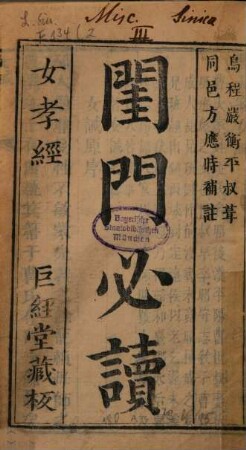 Misc. Sinica
III
烏程嚴衡平叔葺
同邑方應時補註
閨門必讀
女孝經
巨經堂藏板
Bayerische
Staatsbibliothek
München